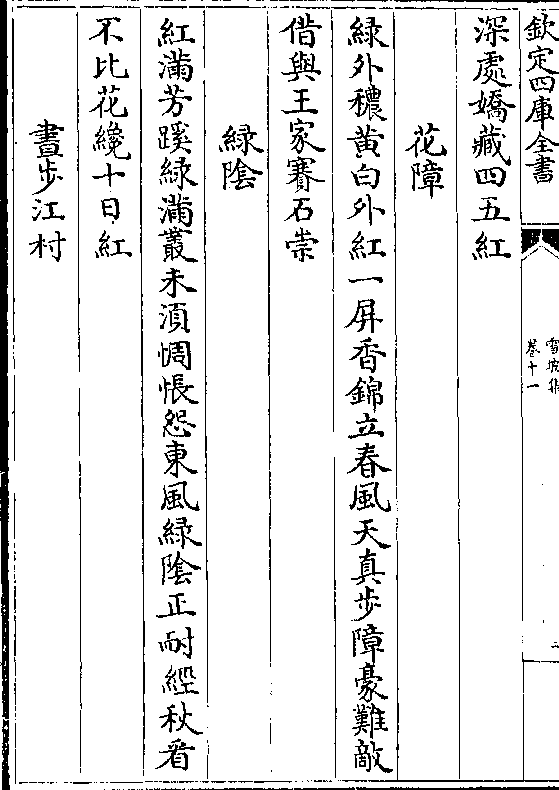 欽定四庫全書
雪坡集
卷十一
二
深處嬌藏四五紅
花障
綠外穠黃白外紅一屏香錦立春風天真步障豪難敵
偕與王家賽石崇
綠陰
紅滿芳蹊綠滿叢未須惆悵怨東風綠陰正耐經秋看
不比花纔十日紅
晝步江村